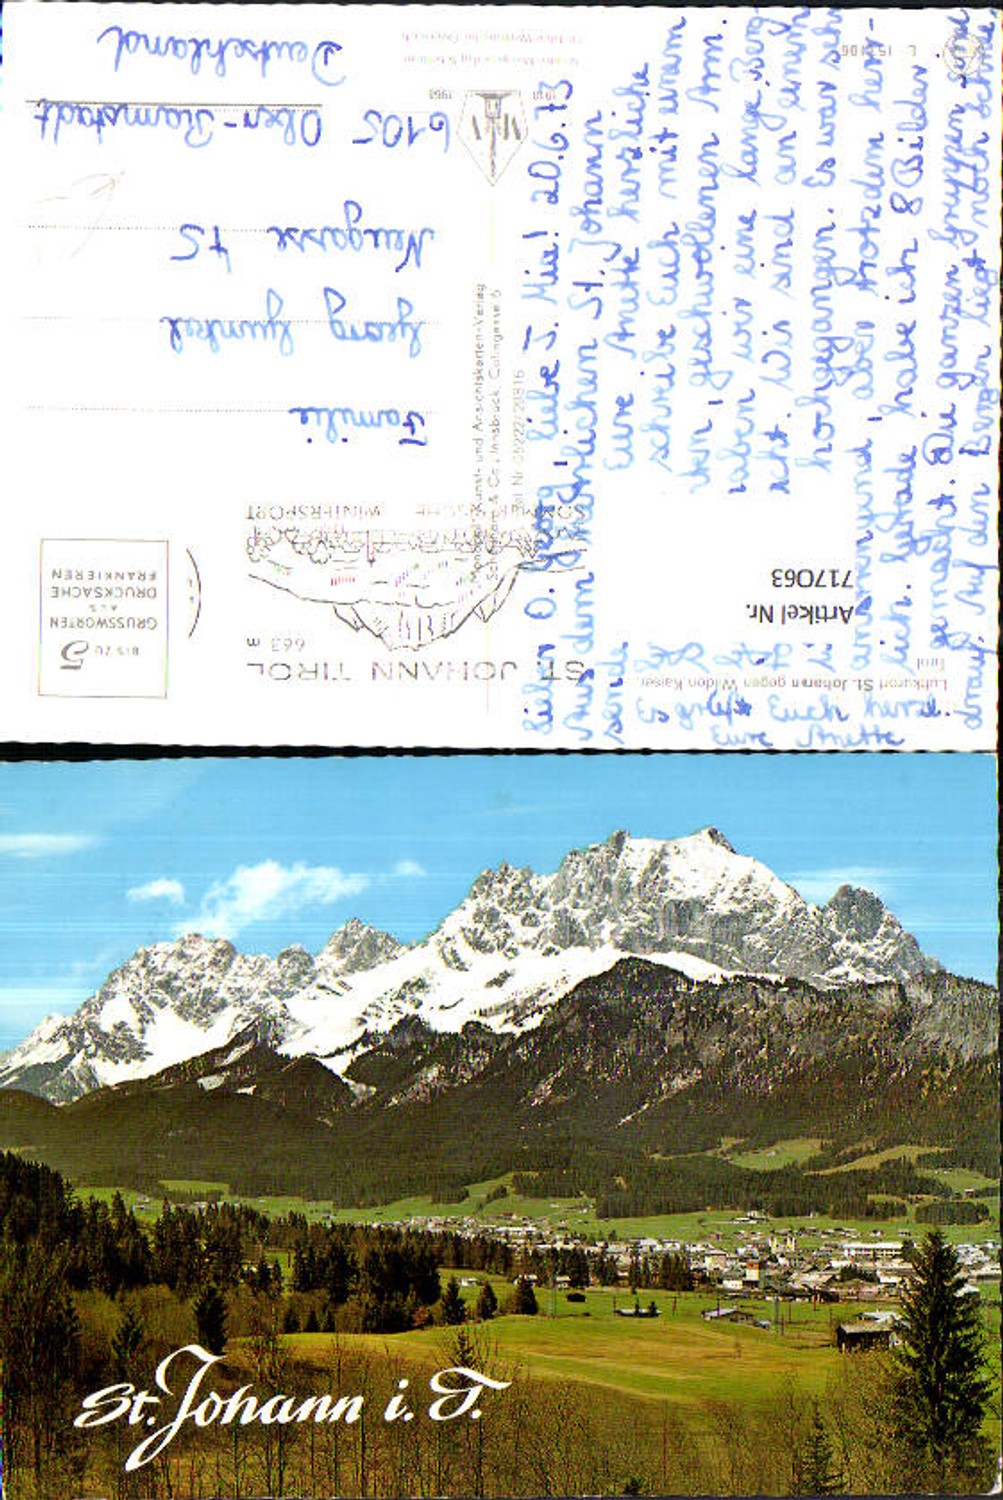 Lieber O. Georg, liebe T. Mia! 20.6.73
Aus dem herrlichen St. Johann
sende Eure Anette herzliche
schreibe Euch mit einem
geschwollenen Arm.
haben wir eine lange Berg-
Wir sind an einem
hochgegangen. Es war sehr
anstrengend, aber trotzdem herr-
lich. Gerade habe ich 8 Bilder
gemacht. Die ganzen Gruppen sind
drauf. Auf den Bergen liegt noch Schnee.
Es grüßt Euch herzl.
Eure Anette
Familie
Georg Gunkel
Neugasse 75
6105 Ober-Ramstadt
Deutschland
BIS ZU 5
GRUSSWORTEN
ALS
DRUCKSACHE
FRANKIEREN
ST. JOHANN TIROL
663 m
SOMMERFRISCHE WINTERSPORT
Luftkurort St. Johann gegen Wilden Kaiser,
Tirol
Artikel Nr.
717063
Kunst- und Ansichtskarten-Verlag
& Co., Innsbruck, Colingasse 6
Tel Nr. 05222/26816
St. Johann i. T.